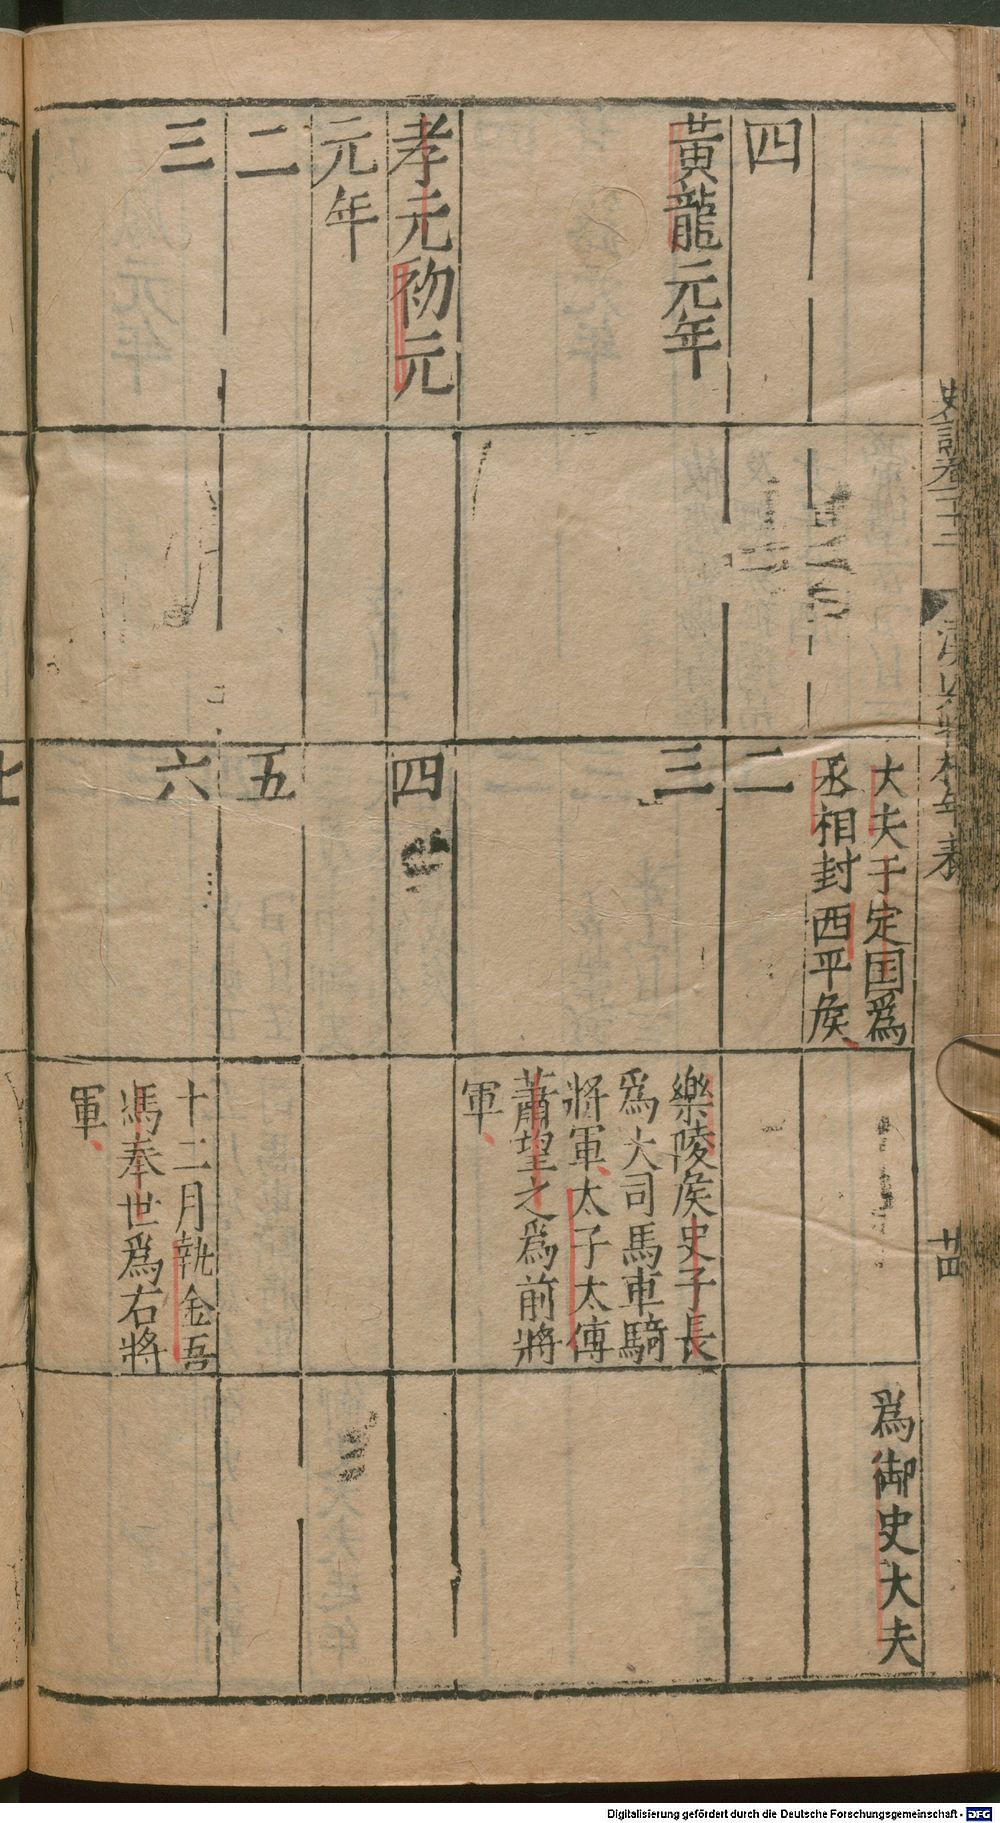 史記卷二十二
漢興將相年表
廿四
大夫于定国爲
丞相封西平矦
爲御史大夫
四
二
黃龍元年
三
樂陵矦史子長
爲大司馬車騎
將軍太子太傅
蕭望之爲前將
軍
孝元初元
四
元年
二
五
三
六
十二月執金吾
馮奉世爲右將
軍
七
Digitalisierung gefördert durch die Deutsche Forschungsgemeinschaft - DFG